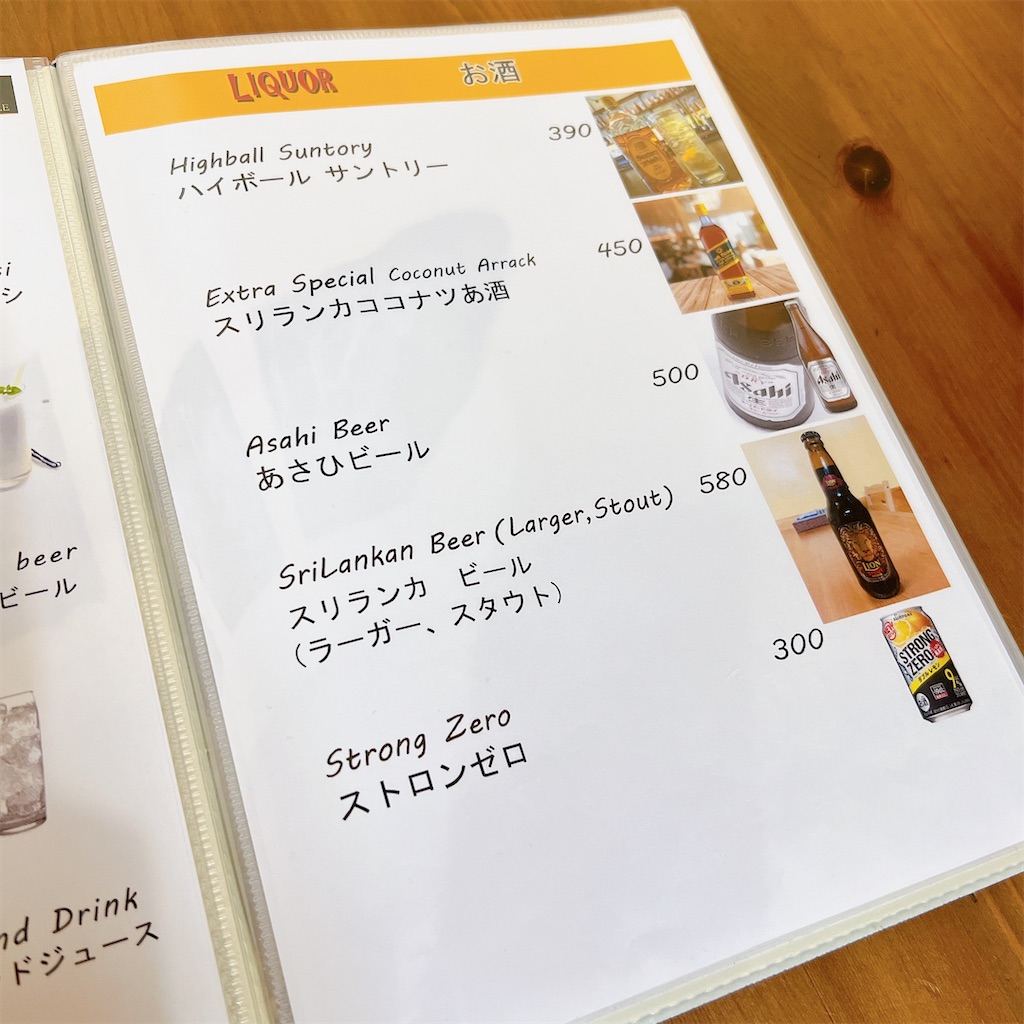 LE
si
シ
beer
ビール
nd Drink
ドジュース
LIQUOR お酒
Highball Suntory 390
ハイボール サントリー
Extra Special Coconut Arrack 450
スリランカココナツあ酒
Asahi Beer 500
あさひビール
Asahi
生
Asahi
SriLankan Beer (Larger,Stout) 580
スリランカ ビール
(ラーガー、スタウト)
LION
Strong Zero 300
ストロンゼロ
STRONG
ZERO
ダブルレモン
9%